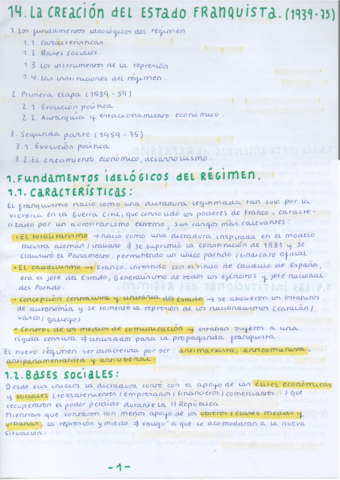 14. LA CREACIÓN DEL ESTADO FRANQUISTA. (1939-75)
1. Los fundamentos ideológicos del régimen
1.1. Características.
1.2. Bases sociales.
1.3. Los instrumentos de la represión
1.4. Las instituciones del régimen.
2. Primera etapa (1939-59)
2.1. Evolución política.
2.2. Autarquía y estancamiento económico.
3. Segunda parte (1959-75)
3.1 Evolución política.
3.2 El crecimiento económico, desarrollismo.
1. FUNDAMENTOS IDELÓGICOS DEL RÉGIMEN.
1.1. CARACTERÍSTICAS:
El franquismo nació como una dictadura legitimada tan solo por la
victoria en la Guerra Civil, que concedió los poderes de Franco, caracte-
rizado por un autoritarismo extremo, sus rasgos más relevantes:
• El totalitarismo → nació como una dictadura inspirada en el modelo
fascista alemán / italiano y se suprimió la constitución de 1931 y se
clausuró el Parlamento, permitiendo un único partido / sindicato oficial
• El caudillismo → Franco, investido con el título de Caudillo de España,
era el jefe del Estado, Generalísimo de todos los ejércitos y jefe nacional
del Partido.
• Concepción centralista y unitaria del Estado → se abolieron los estatutos
de autonomía y se fomentó la represión de los nacionalismos (catalán /
vasco / gallego)
• Control de los medios de comunicación → estaban sujetos a una
rígida censura y utilizados para la propaganda franquista.
El nuevo régimen se caracteriza por ser: antimarxista, anticomunista,
antiparlamentarista y antiliberal
1.2. BASES SOCIALES:
Desde sus inicios la dictadura contó con el apoyo de las élites económicas
y sociales (terratenientes / empresarios / financieros / comerciantes...) que
recuperaron el poder perdido durante la II República
Mientras que contaron con menos apoyo de los obreros / clases medias y
urbanas, la represión y miedo les obligó a que se acomodaran a la nueva
situación.
-1-